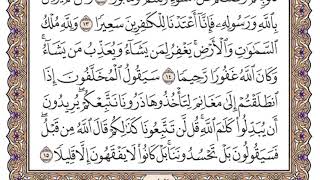 بِٱللَّهِ وَرَسُولِهِۦ فَإِنَّآ أَعْتَدْنَا لِلْكَٰفِرِينَ سَعِيرًا ١٣ وَلِلَّهِ مُلْكُ
ٱلسَّمَٰوَٰتِ وَٱلْأَرْضِ يَغْفِرُ لِمَن يَشَآءُ وَيُعَذِّبُ مَن يَشَآءُ
وَكَانَ ٱللَّهُ غَفُورًا رَّحِيمًا ١٤ سَيَقُولُ ٱلْمُخَلَّفُونَ إِذَا
ٱنطَلَقْتُمْ إِلَىٰ مَغَانِمَ لِتَأْخُذُوهَا ذَرُونَا نَتَّبِعْكُمْ يُرِيدُونَ
أَن يُبَدِّلُوا۟ كَلَٰمَ ٱللَّهِ قُل لَّن تَتَّبِعُونَا كَذَٰلِكُمْ قَالَ ٱللَّهُ مِن قَبْلُ
فَسَيَقُولُونَ بَلْ تَحْسُدُونَنَا بَلْ كَانُوا۟ لَا يَفْقَهُونَ إِلَّا قَلِيلًا ١٥